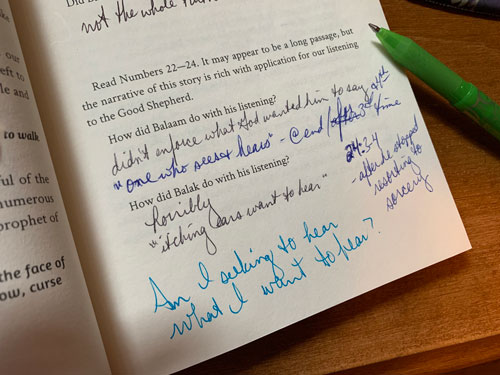 Did Ba
not the whole
our
left to
le and
to walk
ful of the
numerous
prophet of
the face of
ow, curse
Read Numbers 22—24. It may appear to be a long passage, but
the narrative of this story is rich with application for our listening
to the Good Shepherd.
How did Balaam do with his listening?
didn't enforce what God wanted him to say
"one who sees & hears" - @ end 3rd & 4th
time
24:3-4
- after he stopped
resorting to
sorcery
How did Balak do with his listening?
horribly
"itching ears want to hear"
Am I seeking to hear
what I want to hear?